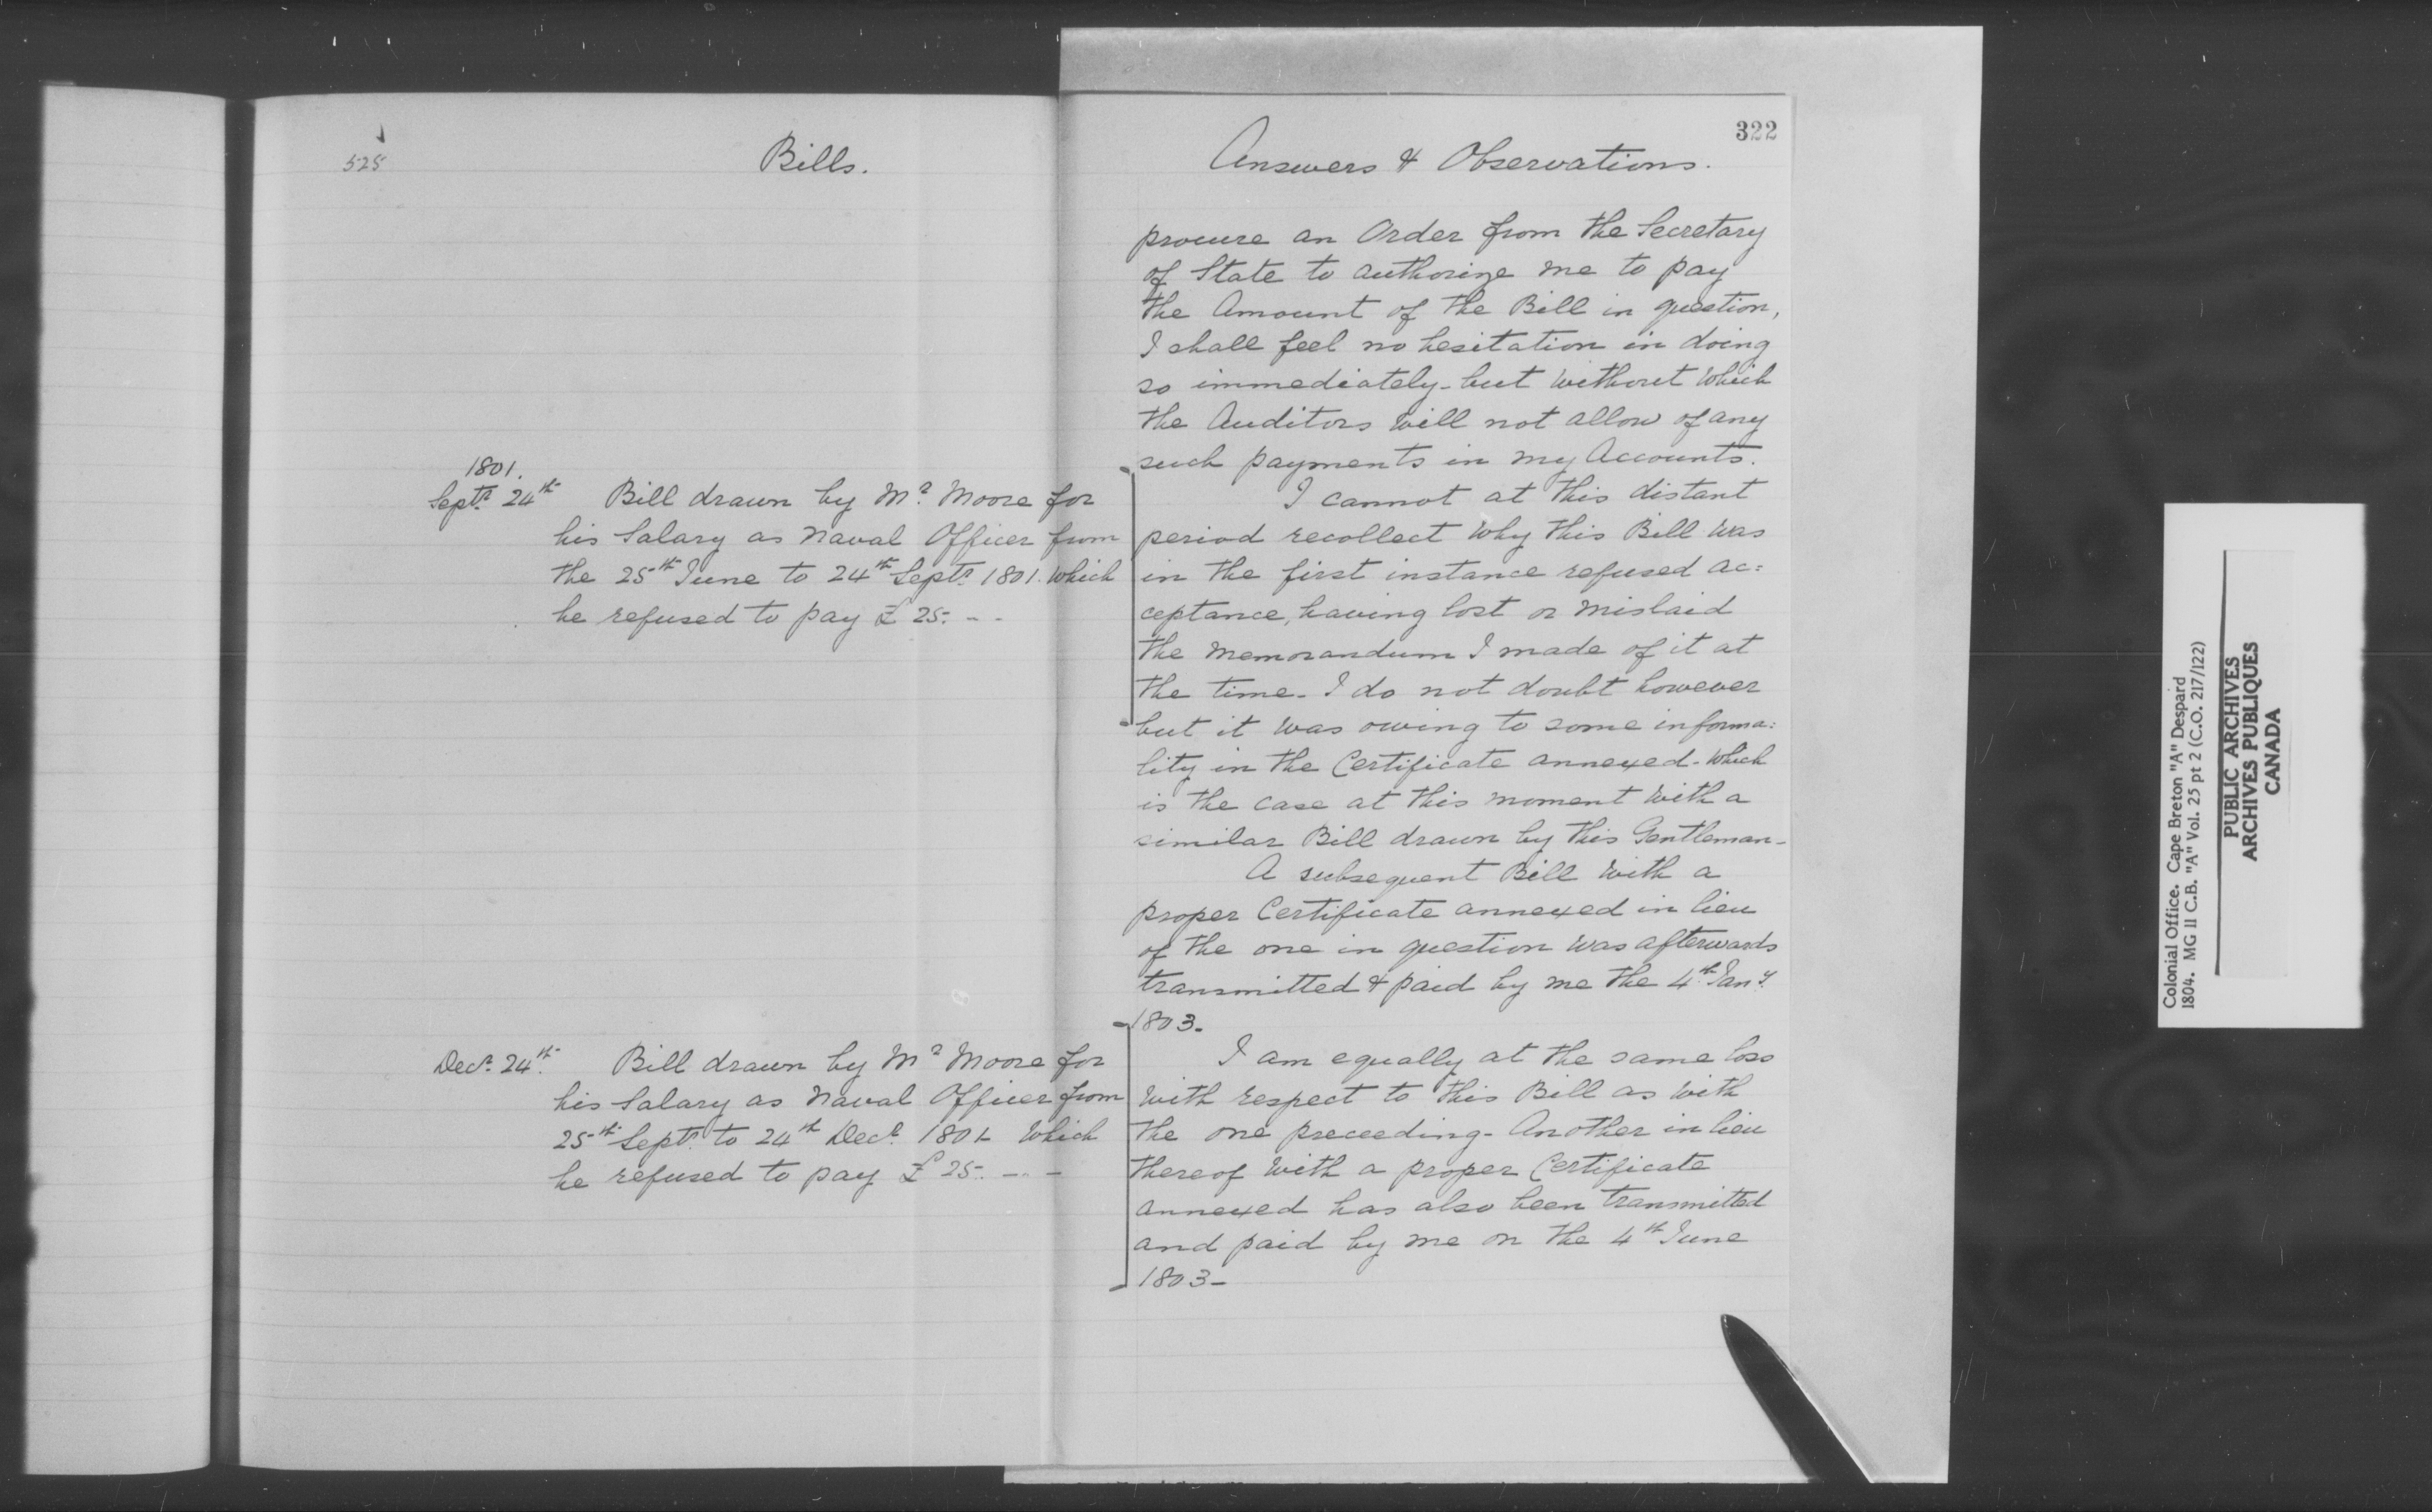 525
Bills.
1801.
Septr 24th Bill drawn by Mr. Moore for
his Salary as Naval Officer from
the 25th June to 24th Septr 1801. which
he refused to pay £ 25. - -
Decr. 24th. Bill drawn by Mr Moore for
his Salary as Naval Officer from
25th Septr. to 24th Decr. 1801 - which
he refused to pay £ 25. - - -
322
Answers & Observations.
procure an Order from the Secretary
of State to authorize me to pay
the Amount of the Bill in question,
I shall feel no hesitation in doing
so immediately - but without which
the Auditors will not allow of any
such payments in my Accounts.
I cannot at this distant
period recollect why this Bill was
in the first instance refused ac=
ceptance, having lost or mislaid
the memorandum I made of it at
the time - I do not doubt however
but it was owing to some informa=
lity in the Certificate annexed - which
is the case at this moment with a
similar Bill drawn by this Gentleman -
A subsequent Bill with a
proper Certificate annexed in lieu
of the one in question was afterwards
transmitted & paid by me the 4th Jany.
1803 -
I am equally at the same loss
with respect to this Bill as with
the one preceeding - Another in lieu
thereof with a proper Certificate
annexed has also been transmitted
and paid by me on the 4th June
1803 -
Colonial Office. Cape Breton "A" Despard
1804. MG 11 C.B. "A" Vol. 25 pt 2 (C.O. 217/122)
PUBLIC ARCHIVES
ARCHIVES PUBLIQUES
CANADA